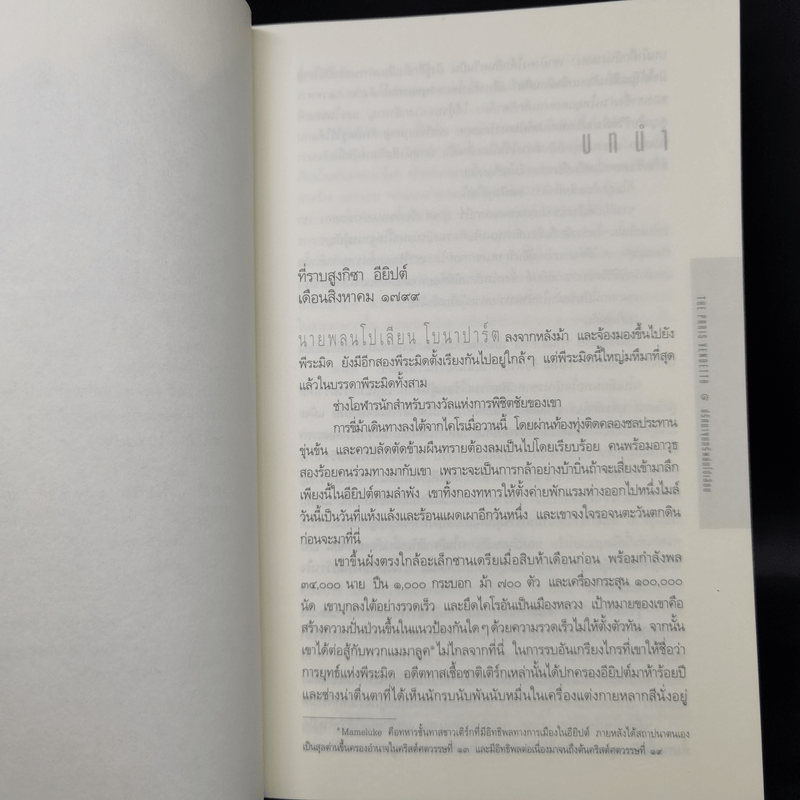 บทนำ
ที่ราบสูงกิซา อียิปต์
เดือนสิงหาคม ๑๗๙๙
นายพลนโปเลียน โบนาปาร์ต ลงจากหลังม้า และจ้องมองขึ้นไปยัง
พีระมิด ยังมีอีกสองพีระมิดตั้งเรียงกันไปอยู่ใกล้ๆ แต่พีระมิดนี้ใหญ่มหึมาที่สุด
แล้วในบรรดาพีระมิดทั้งสาม
ช่างโอฬารนักสำหรับรางวัลแห่งการพิชิตชัยของเขา
การขี่ม้าเดินทางลงใต้จากไคโรเมื่อวานนี้ โดยผ่านท้องทุ่งติดคลองชลประทาน
ขุ่นข้น และควบลัดตัดข้ามผืนทรายต้องลมเป็นไปโดยเรียบร้อย คนพร้อมอาวุธ
สองร้อยคนร่วมทางมากับเขา เพราะจะเป็นการกล้าอย่างบ้าบิ่นถ้าจะเสี่ยงเข้ามาลึก
เพียงนี้ในอียิปต์ตามลำพัง เขาทิ้งกองทหารให้ตั้งค่ายพักแรมห่างออกไปหนึ่งไมล์
วันนี้เป็นวันที่แห้งแล้งและร้อนแผดเผาอีกวันหนึ่ง และเขาจงใจรอจนตะวันตกดิน
ก่อนจะมาที่นี่
เขาขึ้นฝั่งตรงใกล้อะเล็กซานเดรียเมื่อสิบห้าเดือนก่อน พร้อมกำลังพล
๓๔,๐๐๐ นาย ปืน ๑,๐๐๐ กระบอก ม้า ๗๐๐ ตัว และเครื่องกระสุน ๑๐๐,๐๐๐
นัด เขาบุกลงใต้อย่างรวดเร็ว และยึดไคโรอันเป็นเมืองหลวง เป้าหมายของเขาคือ
สร้างความปั่นป่วนขึ้นในแนวป้องกันใดๆ ด้วยความรวดเร็วไม่ให้ตั้งตัวทัน จากนั้น
เขาได้ต่อสู้กับพวกแมมาลูค* ไม่ไกลจากที่นี่ ในการรบอันเกรียงไกรที่เขาให้ชื่อว่า
การยุทธ์แห่งพีระมิด อดีตทาสเชื้อชาติเติร์กเหล่านั้นได้ปกครองอียิปต์มาห้าร้อยปี
และช่างน่าตื่นตาที่ได้เห็นนักรบนับพันนับหมื่นในเครื่องแต่งกายหลากสีนั่งอยู่
*Mameluke คือทหารชั้นทาสชาวเติร์กที่มีอิทธิพลทางการเมืองในอียิปต์ ภายหลังได้สถาปนาตนเอง
เป็นสุลต่านขึ้นครองอำนาจในคริสต์ศตวรรษที่ ๑๓ และมีอิทธิพลต่อเนื่องมาจนถึงต้นคริสต์ศตวรรษที่ ๑๙
THE PARIS VENDETTA